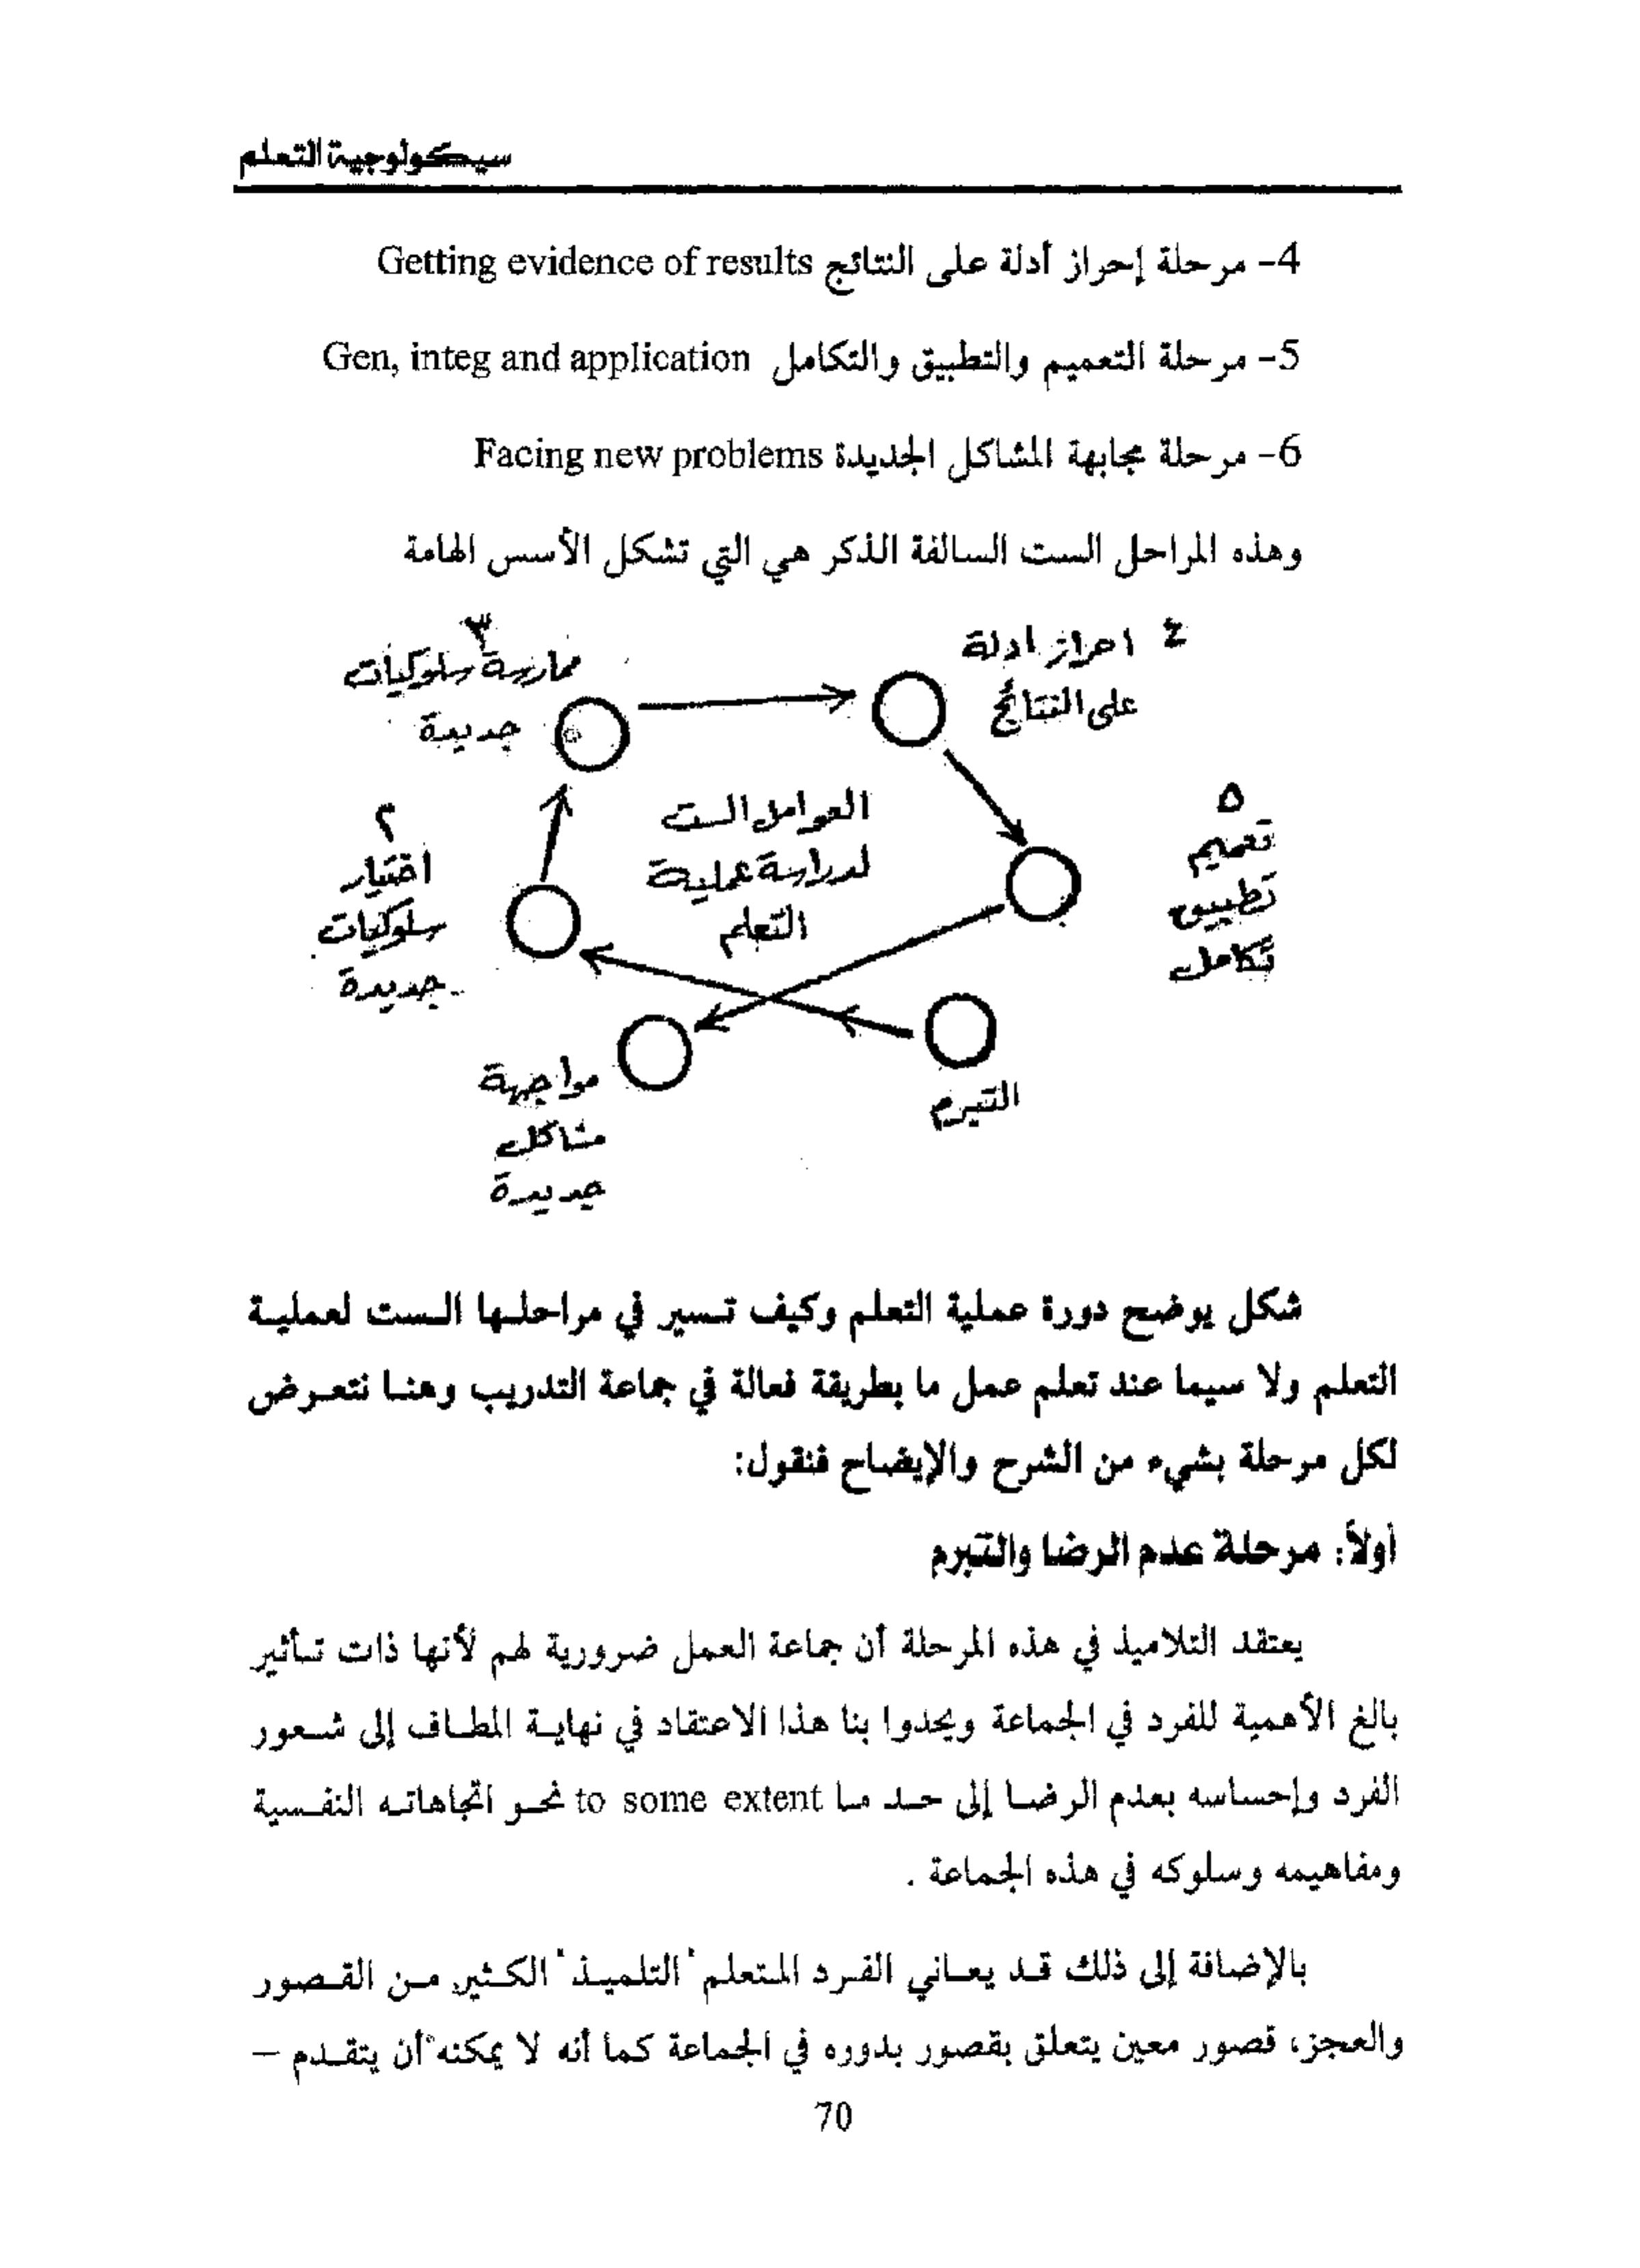 سيكولوجية التعلم
4- مرحلة إحراز أدلة على النتائج Getting evidence of results
5- مرحلة التعميم والتطبيق والتكامل Gen, integ and application
6- مرحلة مجابهة المشاكل الجديدة Facing new problems
وهذه المراحل الست السالفة الذكر هي التي تشكل الأسس الهامة
٤ احراز ادلة
على النتائج
٣
ممارسة سلوكيات
جديدة
٥
تعميم
تطبيق
تكامل
العوامل الست
لدراسة عملية
التعلم
٢
اختيار
سلوكيات
جديدة
التبرم
مواجهة
مشاكل
جديدة
شكل يوضح دورة عملية التعلم وكيف تسير في مراحلها الست لعملية
التعلم ولا سيما عند تعلم عمل ما بطريقة فعالة في جماعة التدريب وهنا نتعرض
لكل مرحلة بشيء من الشرح والإيضاح فنقول:
أولاً: مرحلة عدم الرضا والتبرم
يعتقد التلاميذ في هذه المرحلة أن جماعة العمل ضرورية لهم لأنها ذات تأثير
بالغ الأهمية للفرد في الجماعة ويحدوا بنا هذا الاعتقاد في نهاية المطاف إلى شعور
الفرد وإحساسه بعدم الرضا إلى حد ما to some extent نحو اتجاهاته النفسية
ومفاهيمه وسلوكه في هذه الجماعة .
بالإضافة إلى ذلك قد يعاني الفرد المتعلم "التلميذ" الكثير من القصور
والعجز، قصور معين يتعلق بقصور بدوره في الجماعة كما أنه لا يمكنه أن يتقدم –
70